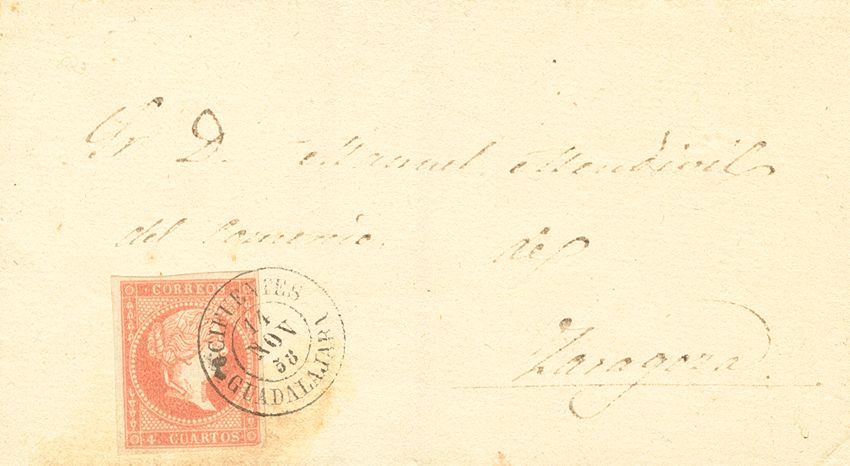 Sr D. Manuel Mendivil
del Comercio. de
Zaragoza.
CORREOS
4. CUARTOS
CIFUENTES
14
NOV
58
GUADALAJARA